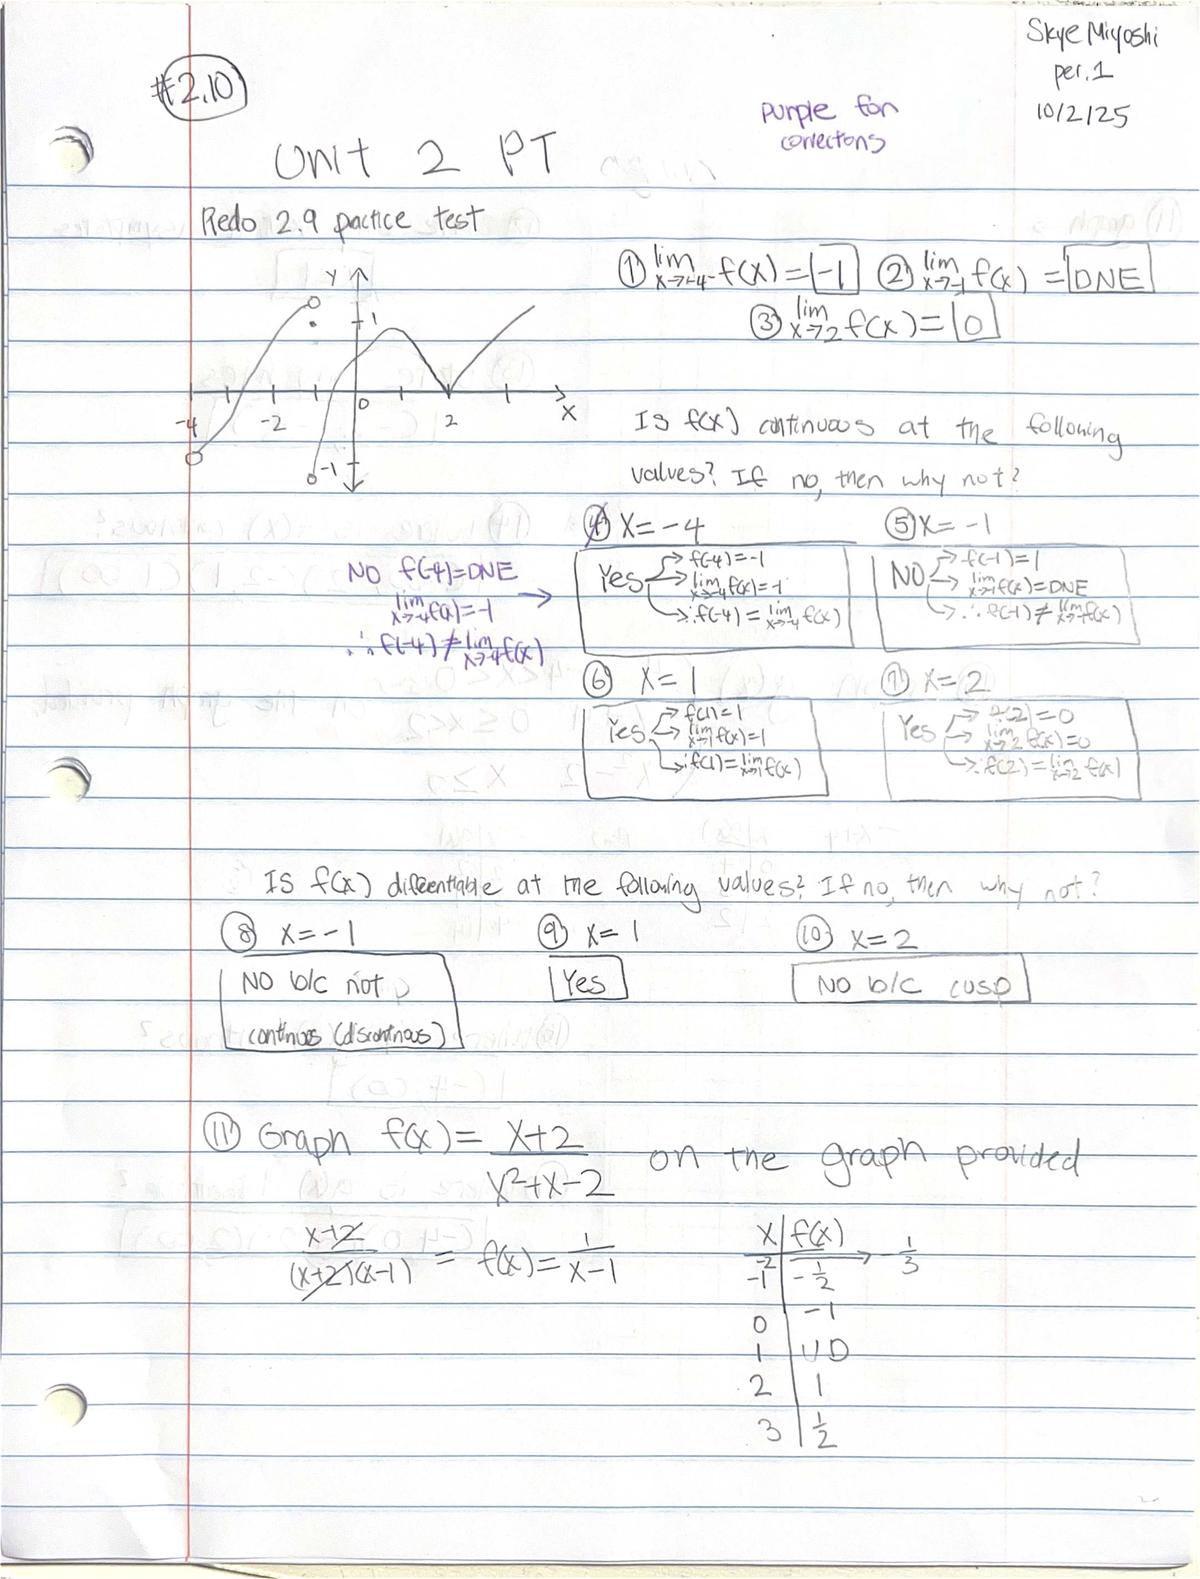 Skye Miyoshi
per. 1
10/2/25
#2.10
purple for
corrections
Unit 2 PT
Redo 2.9 pactice test
① lim x→-4⁻ f(x) = -1 ② lim x→-1 f(x) = DNE
③ lim x→2 f(x) = 0
Y
1
-4 -2 0 2 X
-1
Is f(x) continuous at the following
values? If no, then why not?
④ x = -4 ⑤ x = -1
Yes → f(-4) = -1 → lim x→-4 f(x) = -1 → ∴ f(-4) = lim x→-4 f(x)
NO f(-4) = DNE
lim x→-4 f(x) = -1
∴ f(-4) ≠ lim x→-4 f(x)
NO → f(-1) = 1 → lim x→-1 f(x) = DNE → ∴ f(-1) ≠ lim x→-1 f(x)
⑥ x = 1 ⑦ x = 2
Yes → f(1) = 1 → lim x→1 f(x) = 1 → ∴ f(1) = lim x→1 f(x)
Yes → f(2) = 0 → lim x→2 f(x) = 0 → ∴ f(2) = lim x→2 f(x)
Is f(x) differentiable at the following values? If no, then why not?
⑧ x = -1 ⑨ x = 1 ⑩ x = 2
NO b/c not Yes NO b/c cusp
continuos (discontinous)
⑪ Graph f(x) = x+2 / x²+x-2 on the graph provided
x+2 / (x+2)(x-1) = f(x) = 1 / x-1
x | f(x)
-2 → -1/3
-1 | -1/2
0 | -1
1 | UD
2 | 1
3 | 1/2